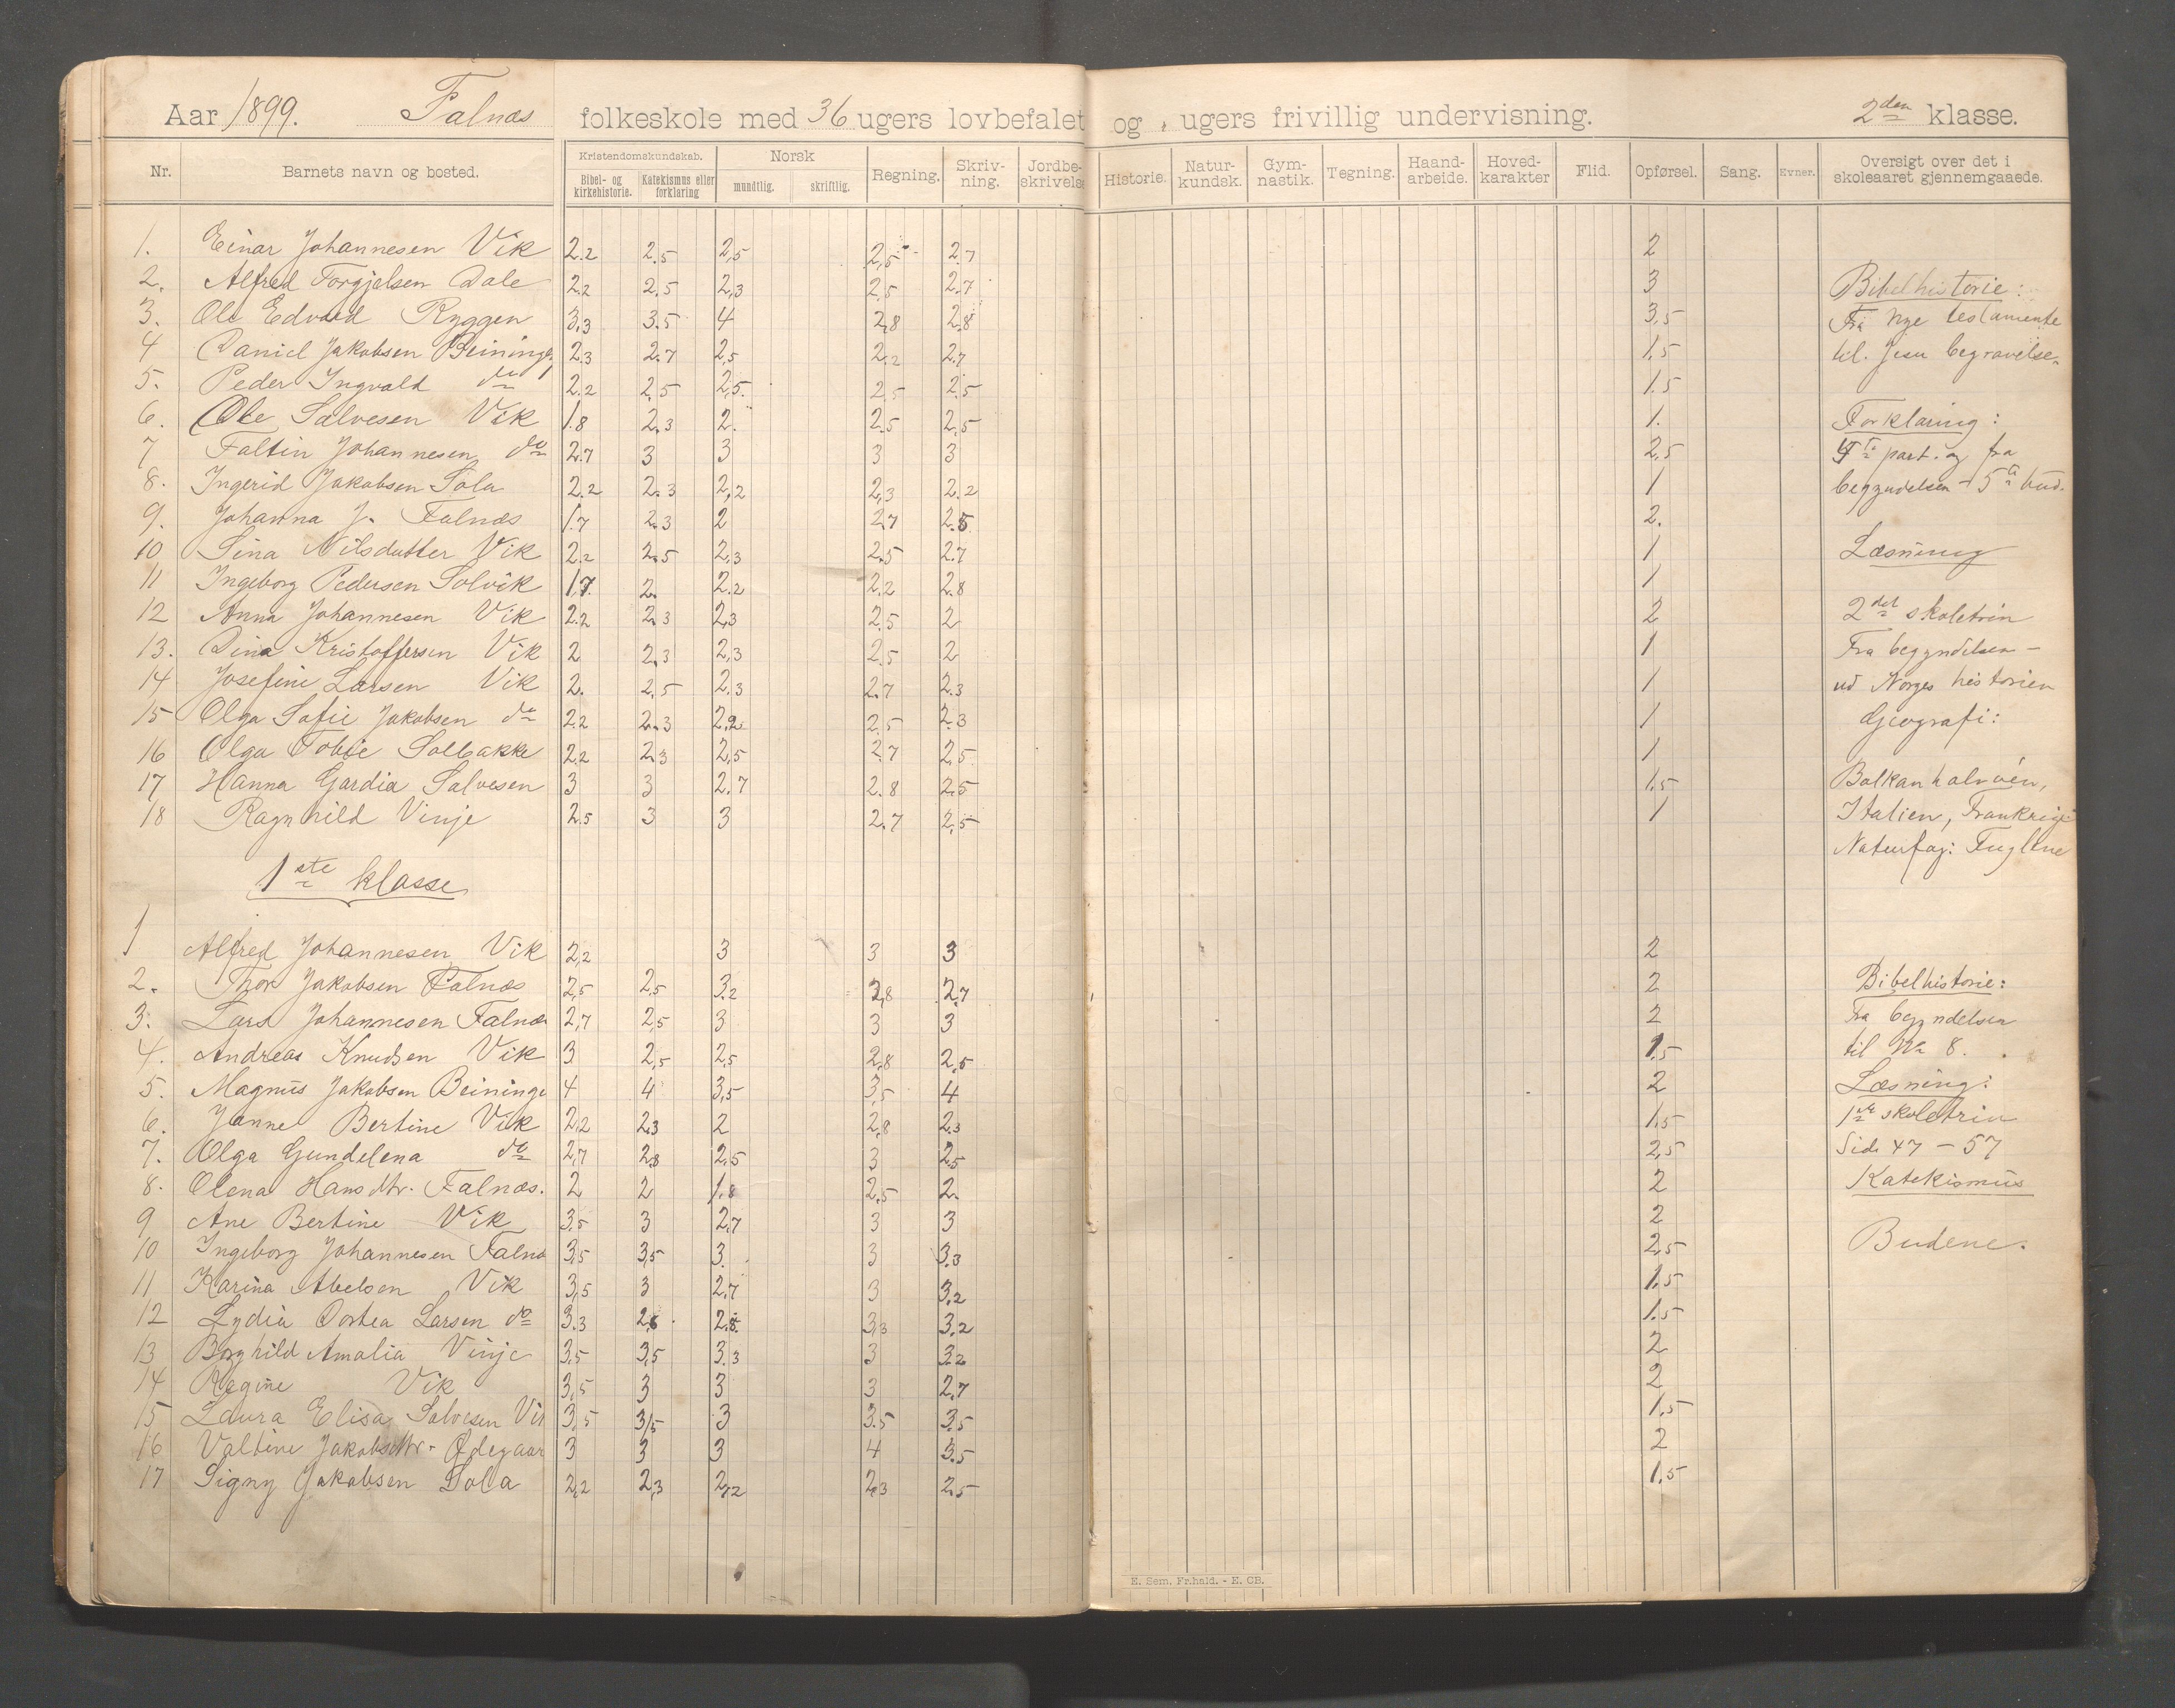 Aar 1899. Falnæs folkeskole med 36 ugers lovbefalet og ugers frivillig undervisning. 2den klasse.
Nr. Barnets navn og bosted. Kristendomskundskab. Bibel- og kirkehistorie. Katekismus eller forklaring Norsk mundtlig. skriftlig. Regning. Skriv-ning. Jordbe-skrivelse Historie. Natur-kundsk. Gym-nastik. Tegning. Haand-arbeide. Hoved-karakter Flid. Opførsel. Sang. Evner. Oversigt over det i skoleaaret gjennemgaaede.
1. Einar Johannesen Vik 2.2 2.5 2,5 2,5 2.7 2
2. Alfred Torgjelsen Dale 2.2 2.5 2,3 2.5 2.7 3 Bibelhistorie:
3. Ole Edvard Ryggen 3,3 3.5 4 2,8 2,8 3,5 Fra nye testamente
4 Daniel Jakobsen Beininge 2.3 2.7 2,5 2,2 2.7 1.5 til Jesu begravelse.
5. Peder Ingvald do 2.2 2,5 2,5. 2,5 2,5 1.5
6. Ole Salvesen Vik 1.8 2.3 2. 2.5 2,5 1. Forklaring:
7 Faltin Johannesen do 2.7 3 3 3 3 2,5 4de part. og fra
8. Ingerid Jakobsen Sola 2.2 2.3 2,2 2,3 2.2 1 begyndelsen - 5te bud.
9. Johanna J. Falnæs 1.7 2.3 2 2.7 2.5 2.
10 Sina Nilsdatter Vik 2.2 2.5 2,3 2.5 2.7 1 Læsning
11 Ingeborg Pedersen Solvik 1.7. 2. 2.2 2.2 2.8 1
12 Anna Johannesen Vik 2.2 2.3 2,3 2.5 2 2 2det skoletrin
13. Dina Kristoffersen Vik 2 2.3 2,3 2.5 2 1 Fra begyndelsen -
14 Josefine Larsen Vik 2. 2,5 2.3 2.7 2.3 1 ud Norges historien
15 Olga Sofie Jakobsen do 2.2 2.3 2,2 2.5 2.3 1 Geografi:
16 Olga Tobie Solbakke 2.2 2.3 2,5 2.7 2,5 1
17 Hanna Gardia Salvesen 3 3 2.7 2.8 2.5 1,5 Balkanhalvøen,
18 Ragnhild Vinje 2.5 3 3 2.7 2,5 1 Italien, Frankrige
Naturfag: Fuglene
1ste klasse
1 Alfred Johannesen Vik 2,2 3 3 3 2
2. Thor Jakobsen Falnæs 2,5 2,5 3.2 2,8 2.7 2 Bibelhistorie:
3. Lars Johannesen Falnæs 2,7 2,5 3 3 3 2 Fra begyndelsen
4. Andreas Knudsen Vik 3 2,5 2,5 2,8 2,5 1.5 til No 8.
5. Magnus Jakobsen Beininge 4 4 3,5 3,5 4 2 Læsning:
6. Janne Bertine Vik 2,2 2.3 2 2,8 2.3 1,5 1ste skoletrin
7. Olga Gundelena do 2,7 2,8 2,5 3 2,5 2,5 Side 47 - 57
8. Olena Hansdtr. Falnæs. 2 2 1.8 2,5 2. 2 Katekismus
9 Ane Bertine Vik 3,5 3 2,7 3 3 2
10 Ingeborg Johannesen Falnæ 3,5 3,5 3. 3 3.3 2,5 Budene.
11 Karina Abelsen Vik 3,5 3 2.7 3 3,2 1.5
12 Lydia Dortea Larsen do 3.3 2,8 2.8. 3,3 3,2 1.5
13 Borghild Amalia Vinje 3,5 3,5 3.3 3 3.2 2
14 Ragine Vik 3,5 3 3 3 2,7 2
15 Laura Elisa Salvesen Vik 3,5 3,5 3 3.5 3,5 1,5
16 Valtine Jakobsdtr. Ødegaar 3 3 3 4 3.5 2
17 Signy Jakobsen Sola 2,2 2,3 2,2 2,3 2,5 1.5
E. Sem, Fr.hald. - E. CB.